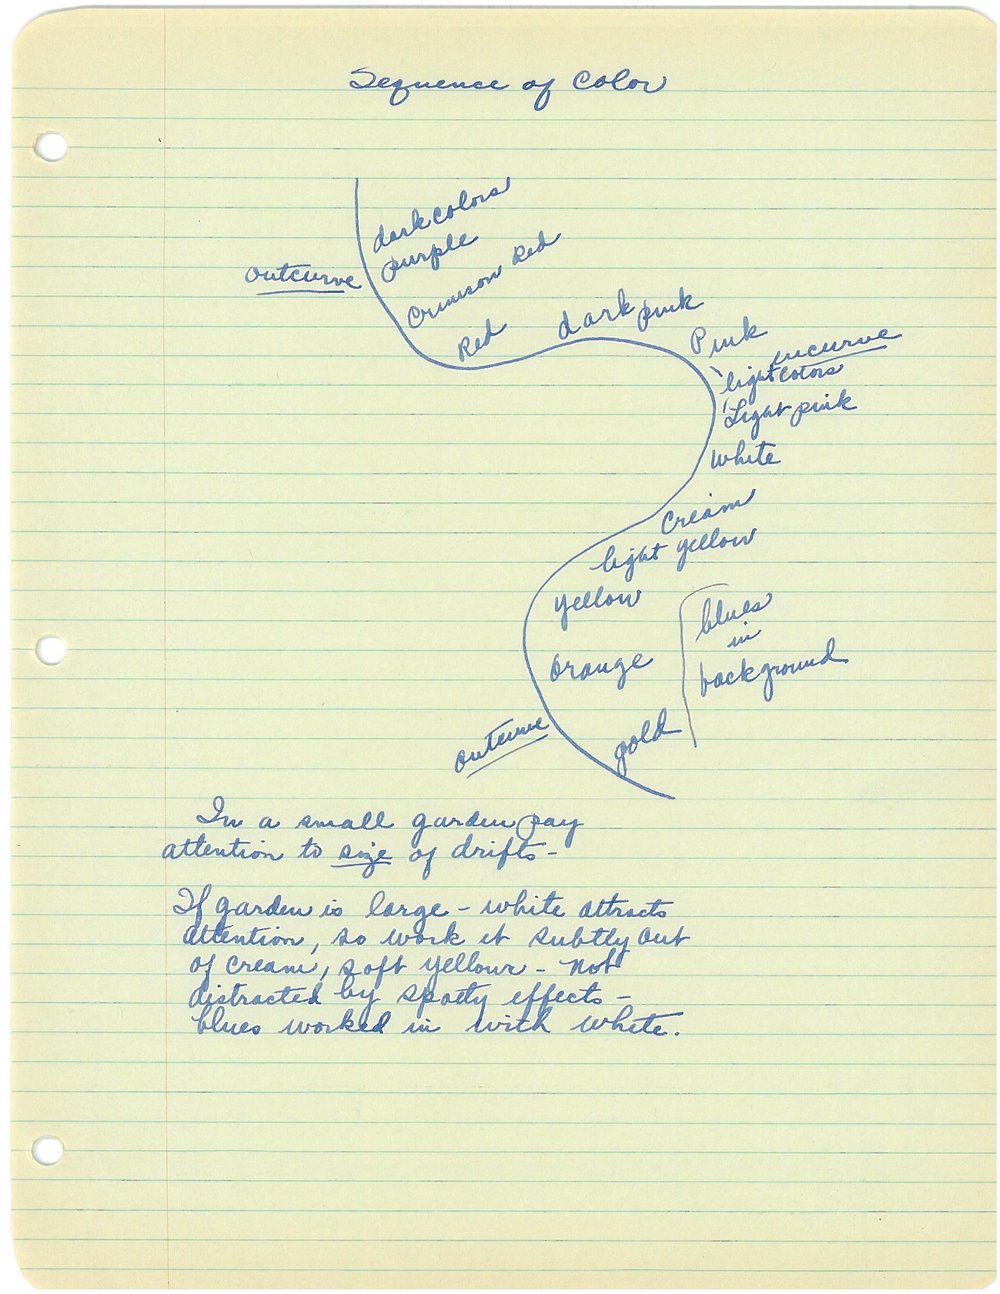 Sequence of Color
dark colors
purple
outcurve
Crimson Red
Red
dark pink
Pink
incurve
light colors
Light pink
White
Cream
light yellow
yellow
blues
in
background
orange
gold
outcurve
In a small garden pay
attention to size of drifts -
If garden is large - white attracts
attention, so work it subtly out
of cream, soft yellow - not
distracted by spotty effects -
blues worked in with white.